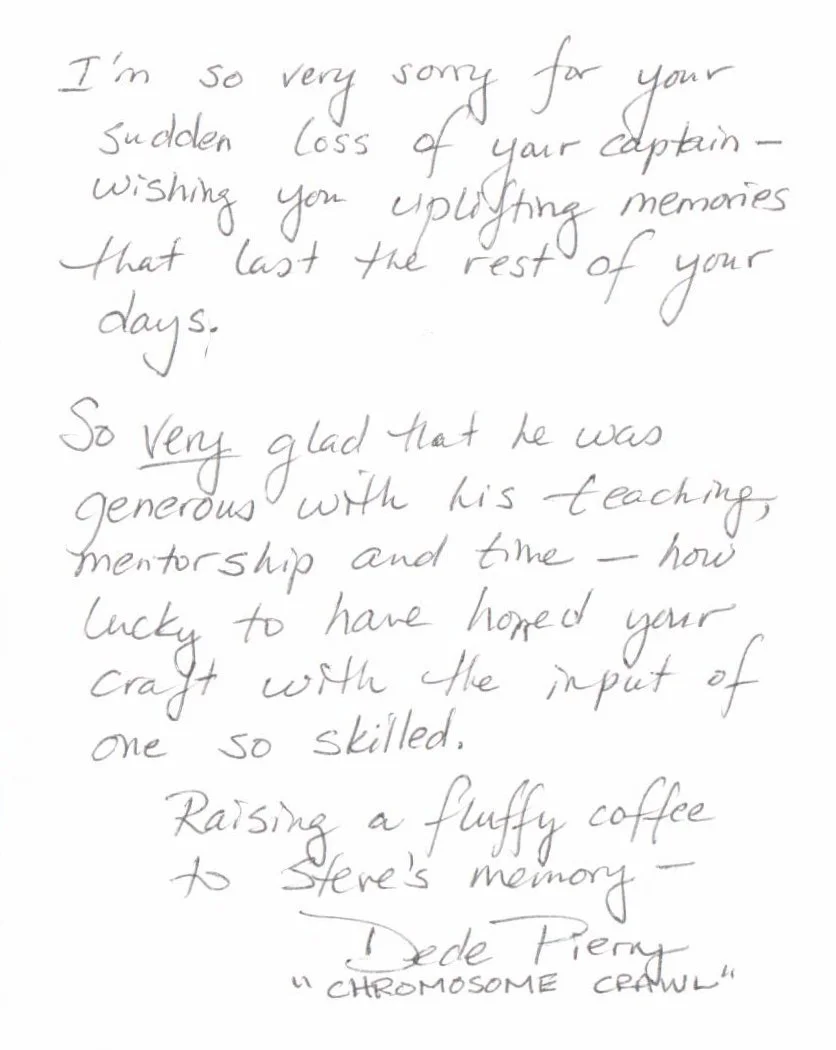 I'm so very sorry for your
sudden loss of your captain –
wishing you uplifting memories
that last the rest of your
days.
So very glad that he was
generous with his teaching,
mentorship and time – how
lucky to have honed your
craft with the input of
one so skilled.
Raising a fluffy coffee
to Steve's memory –
Dede
"CHROMOSOME CRAWL"